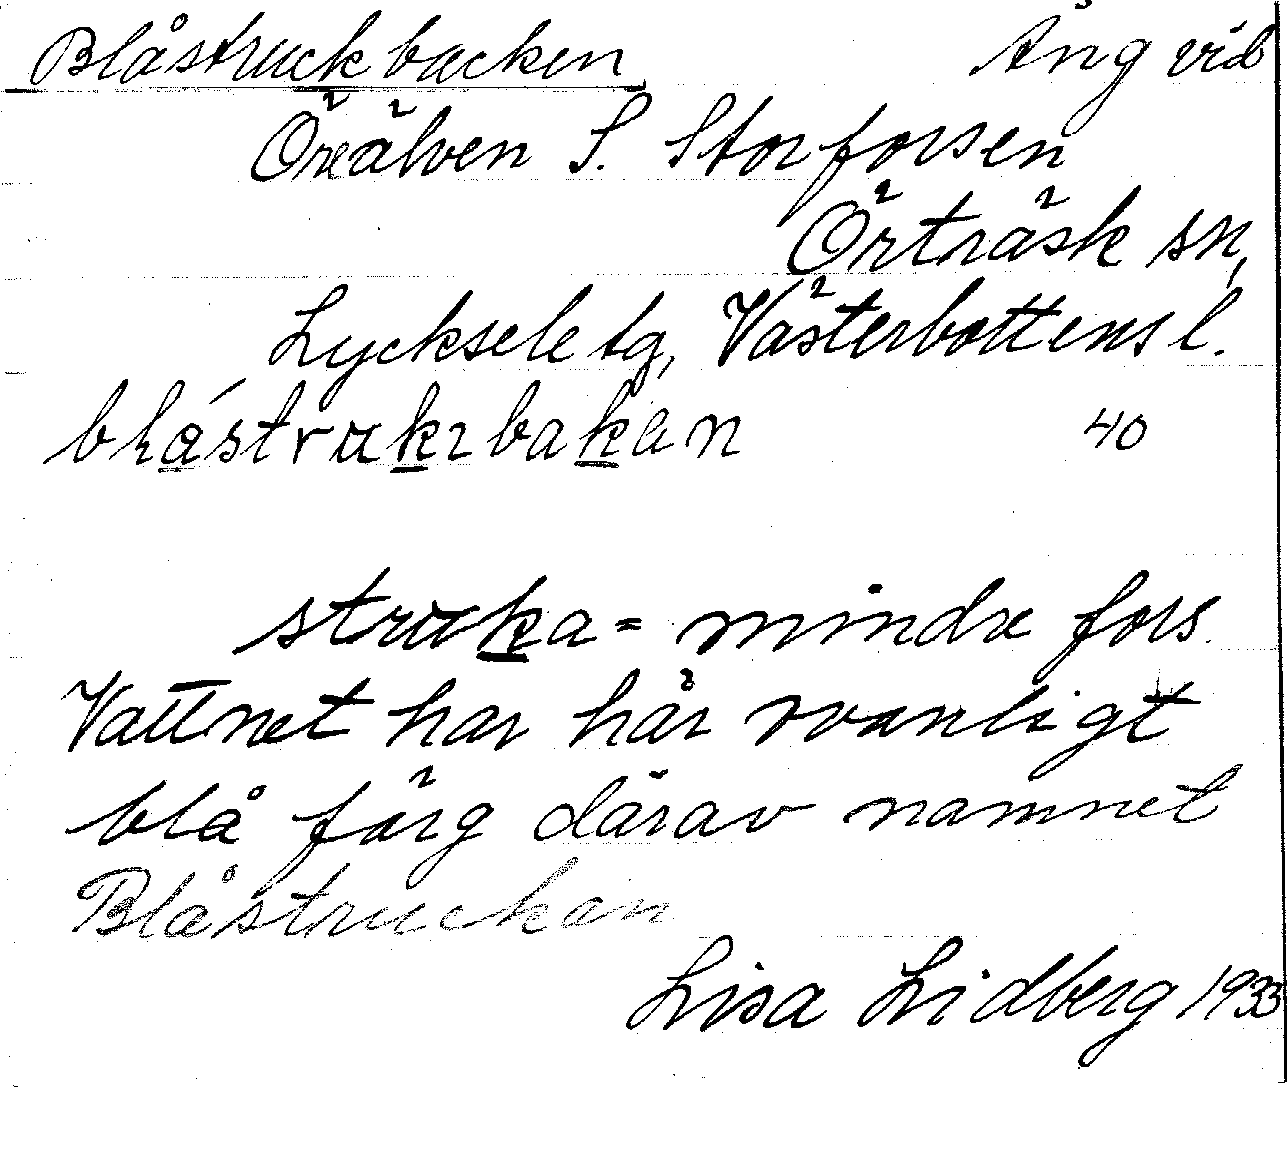 Blåstruckbacken Äng vid
Öreälven S. Storforsen
Örträsk sn,
Lycksele tg, Västerbottens l.
blástrukɩbakan 40
struka = mindre fors.
Vattnet har här ovanligt
blå färg därav namnet
Blåstruckan
Lisa Lidberg 1933